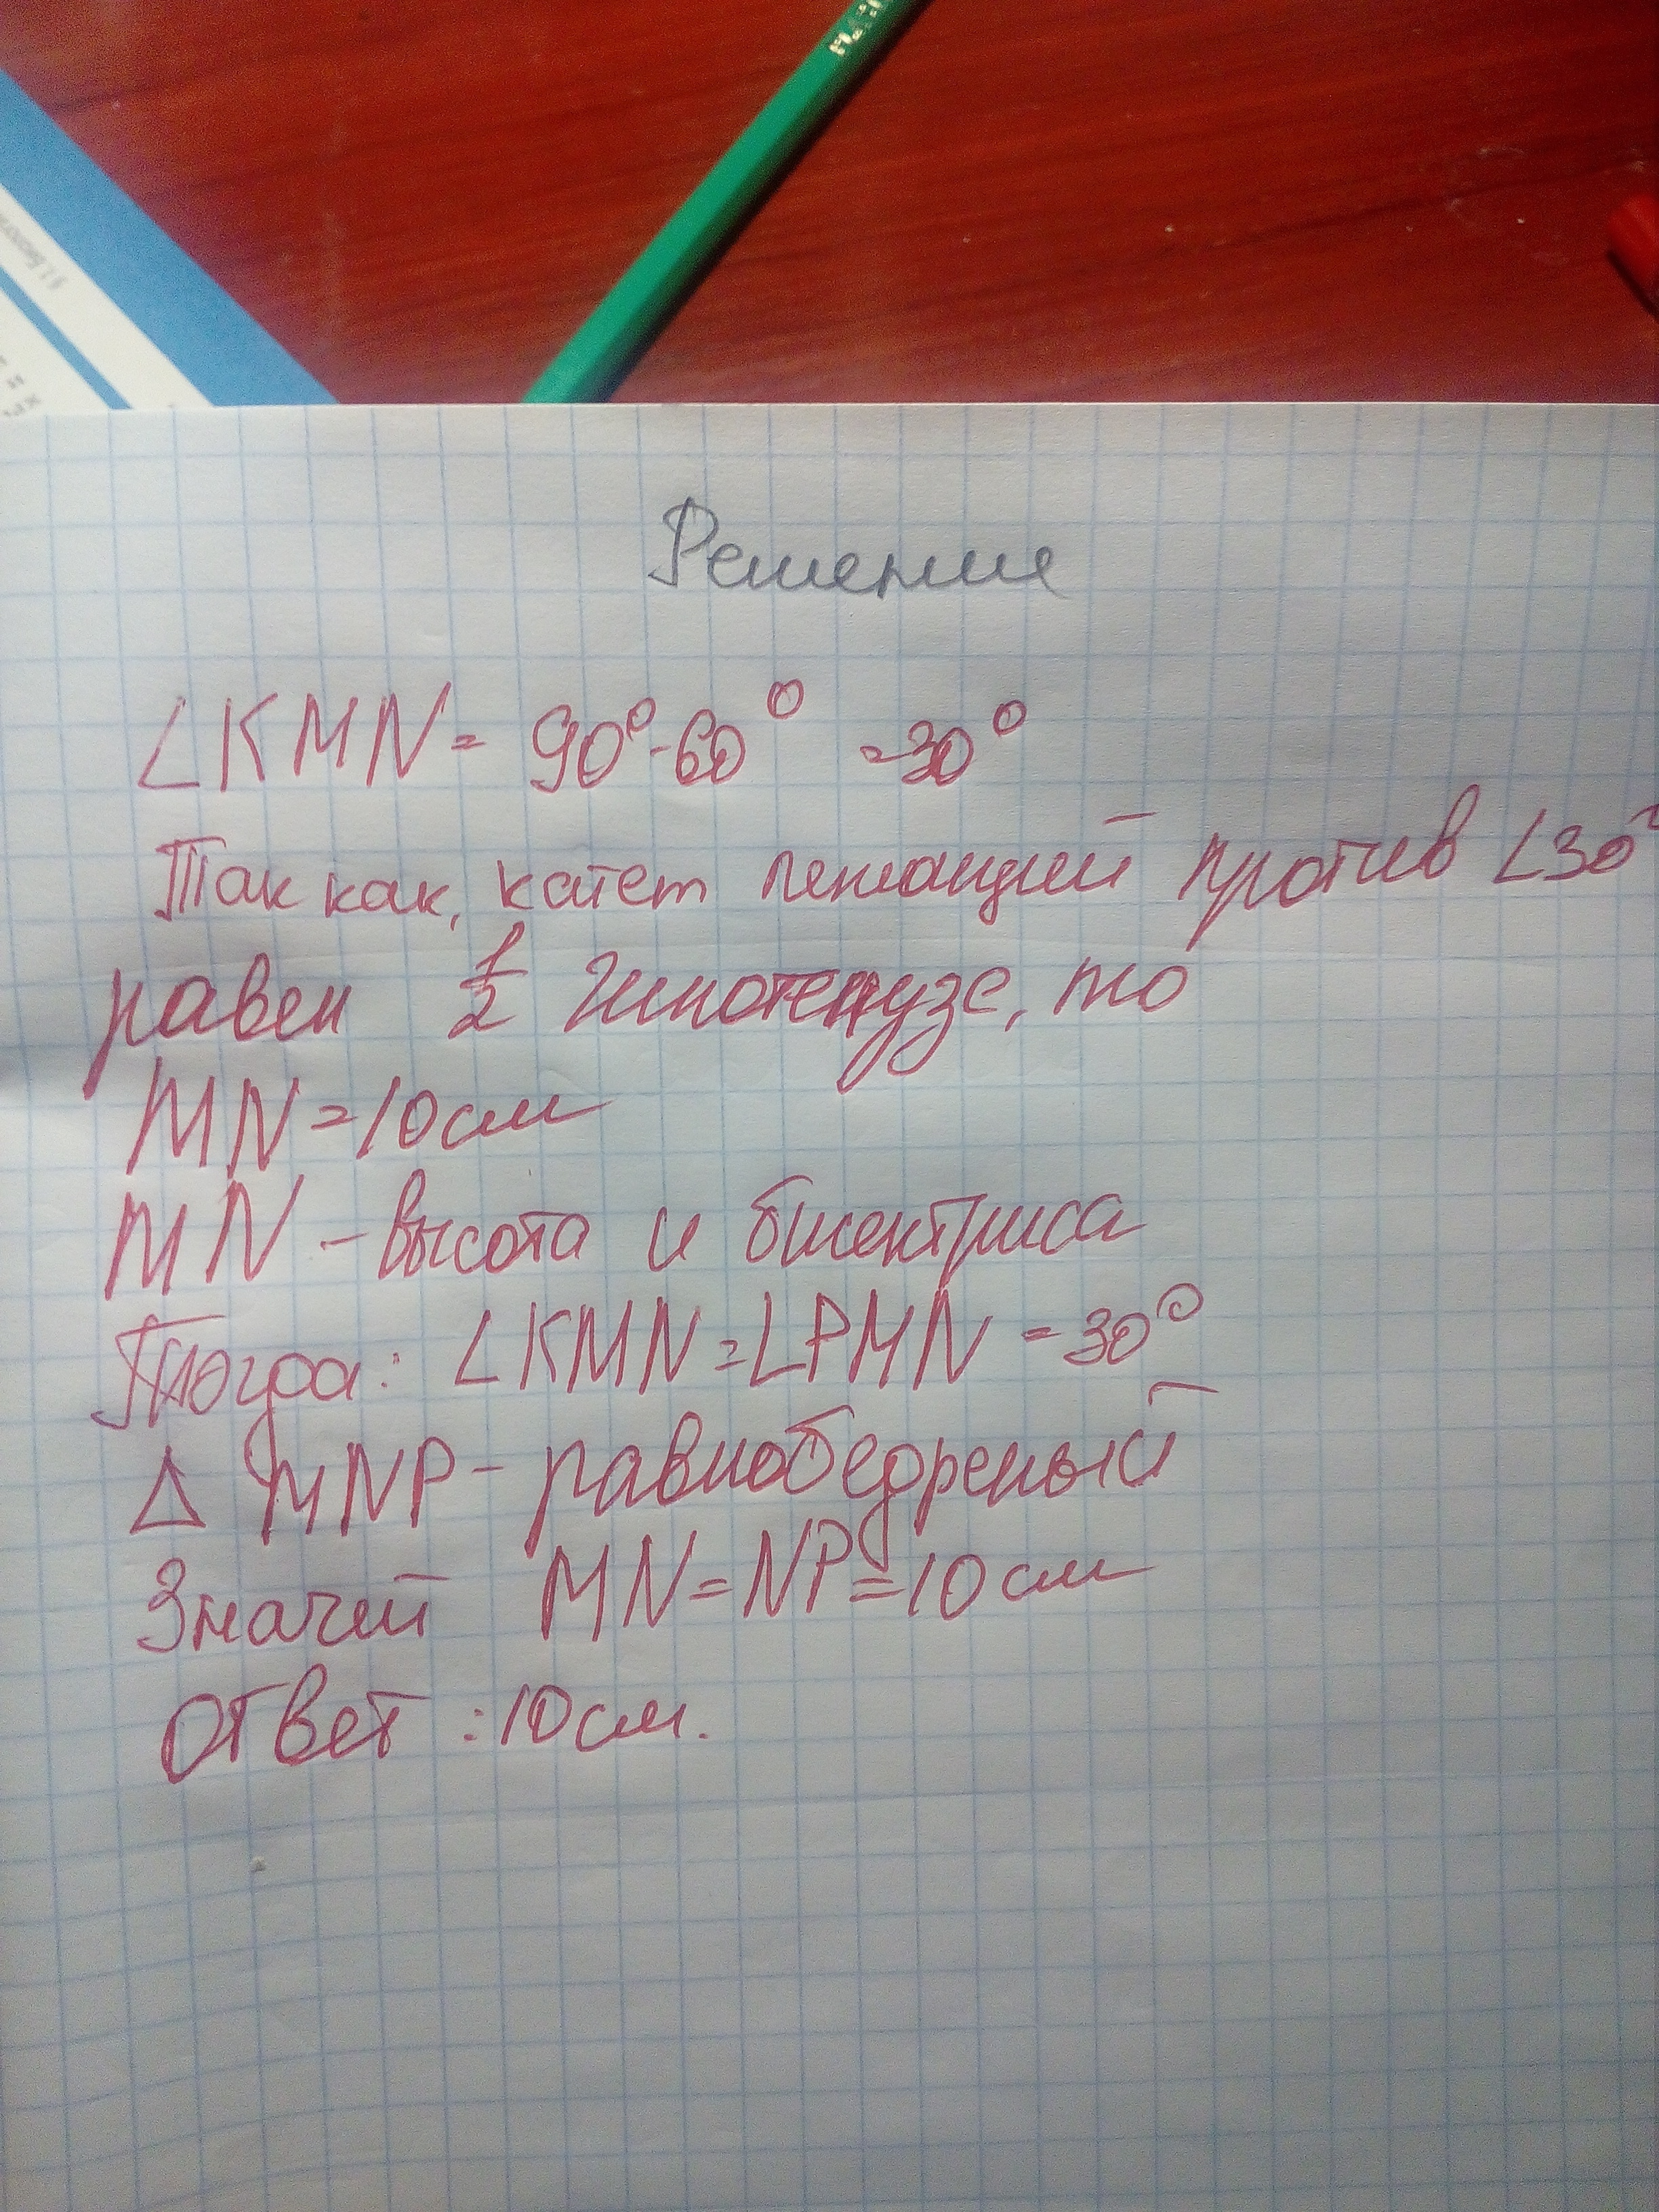 Решение
∠KMN = 90°-60° =30°
Так как, катет лежащий против ∠30°
равен 1/2 гипотенузе, то
MN=10см
MN – высота и бисектриса
Тогда: ∠KMN=∠PMN =30°
Δ MNP – равнобедреный
Значит MN=NP=10см
Ответ :10см.